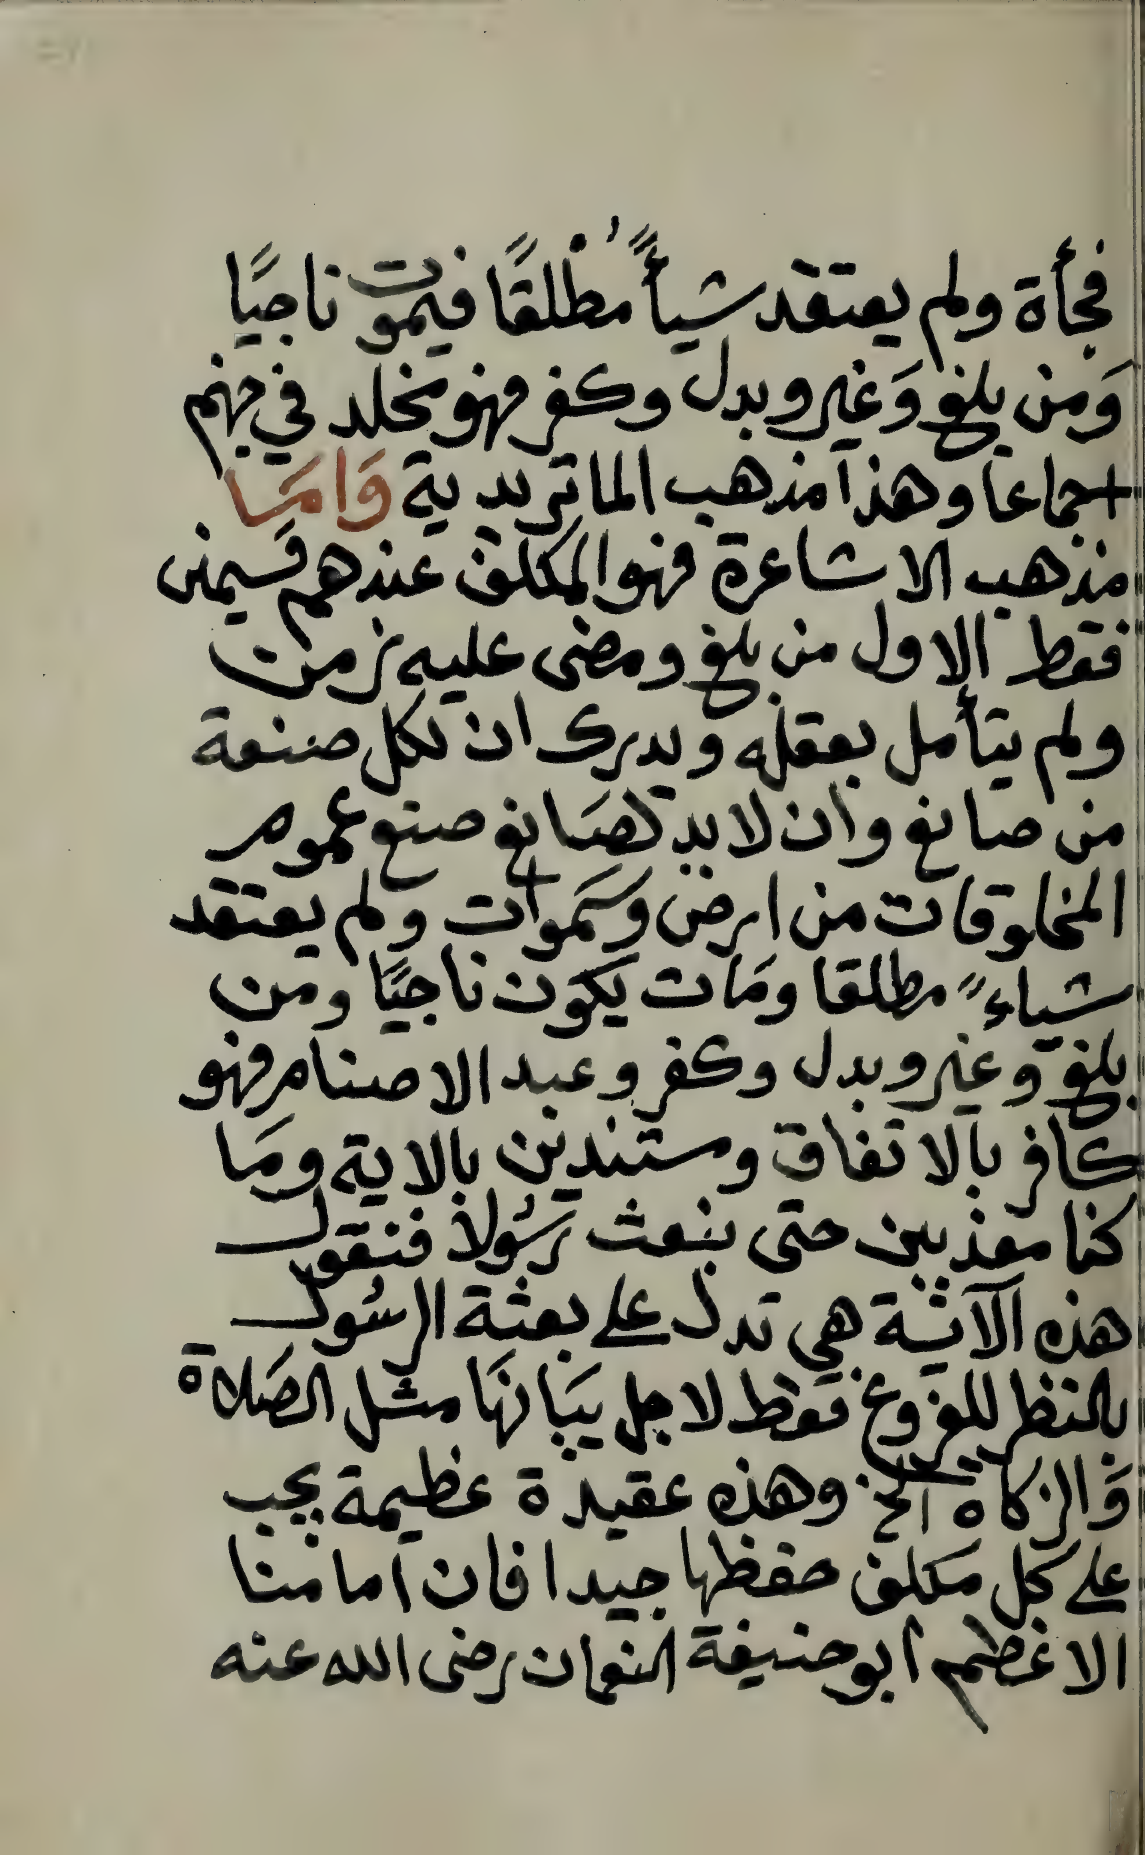 فجأة ولم يعتقد شيأً مطلقًا فيموت ناجيًا
وَمن بلغ وَغير وبدل وكفر فهو مخلد في جهنم
اجماعا وهذا مذهب الماتريدية وَامَا
مذهب الاشاعرة فهو المكلف عندهم قسيمن
فقط الاول من بلغ ومضى عليه زمن
ولم يتأمل بعقله ويدرك ان لكل صنعة
من صانع وان لابد لصَانع صنع عموم
المخلوقات من ارض وسَموات ولم يعتقد
شياءً مطلقا ومَات يكوَن ناجيًا ومن
بلغ وغير وبدل وكفر وعبد الاصنام فهو
كافر بالاتفاق وستندين بالاية ومَا
كنا معذبين حتى نبعث رَسُولا فنقول
هذه الآية هي تدل على بعثة الرسُول
بالنظر للفروع فقط لاجل بيَانهَا مثل الصَلاة
وَالزكاة الخ وهذه عقيدة عظيمة يجب
على كل مَكلف حفظها جيدا فان امامنا
الاعظم ابو حنيفة النعمان رضى الله عنه